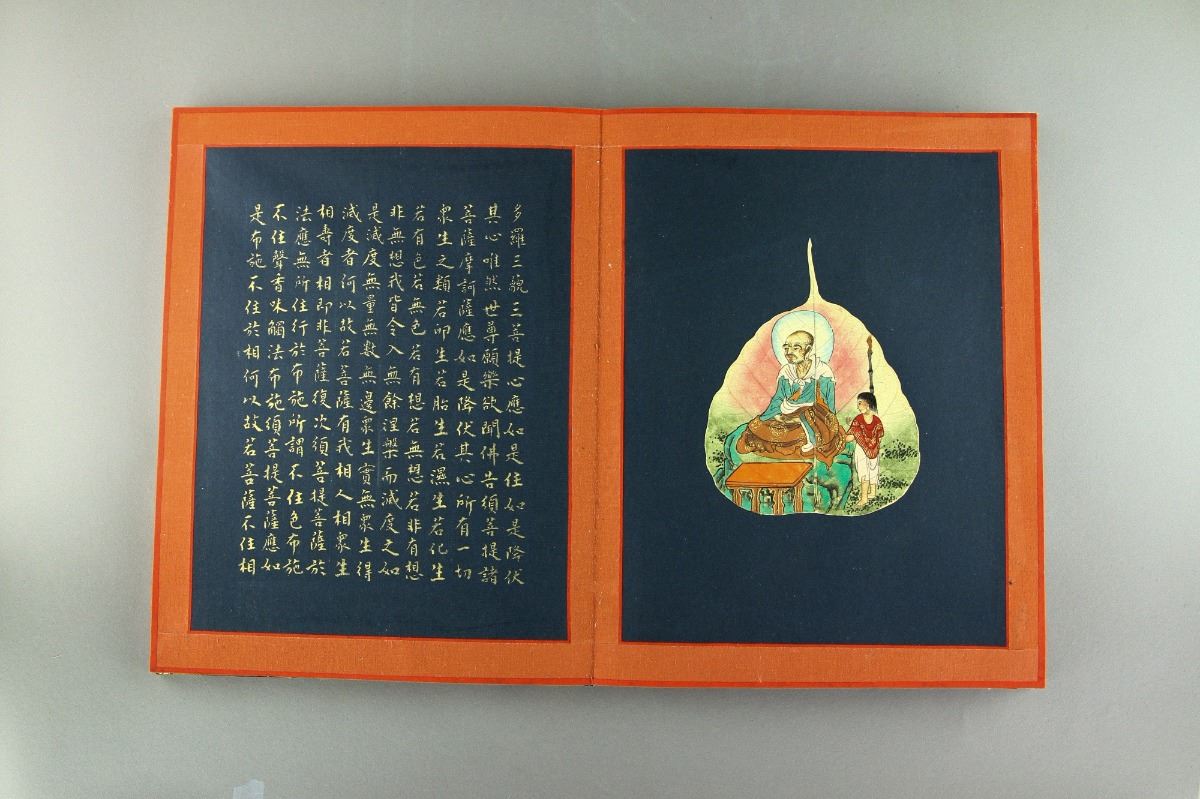 多羅三藐三菩提心應如是住如是降伏
其心唯然世尊願樂欲聞佛告須菩提諸
菩薩摩訶薩應如是降伏其心所有一切
衆生之類若卵生若胎生若濕生若化生
若有色若無色若有想若無想若非有想
非無想我皆令入無餘涅槃而滅度之如
是滅度無量無數無邊衆生實無衆生得
滅度者何以故若菩薩有我相人相衆生
相壽者相即非菩薩復次須菩提菩薩於
法應無所住行於布施所謂不住色布施
不住聲香味觸法布施須菩提菩薩應如
是布施不住於相何以故若菩薩不住相